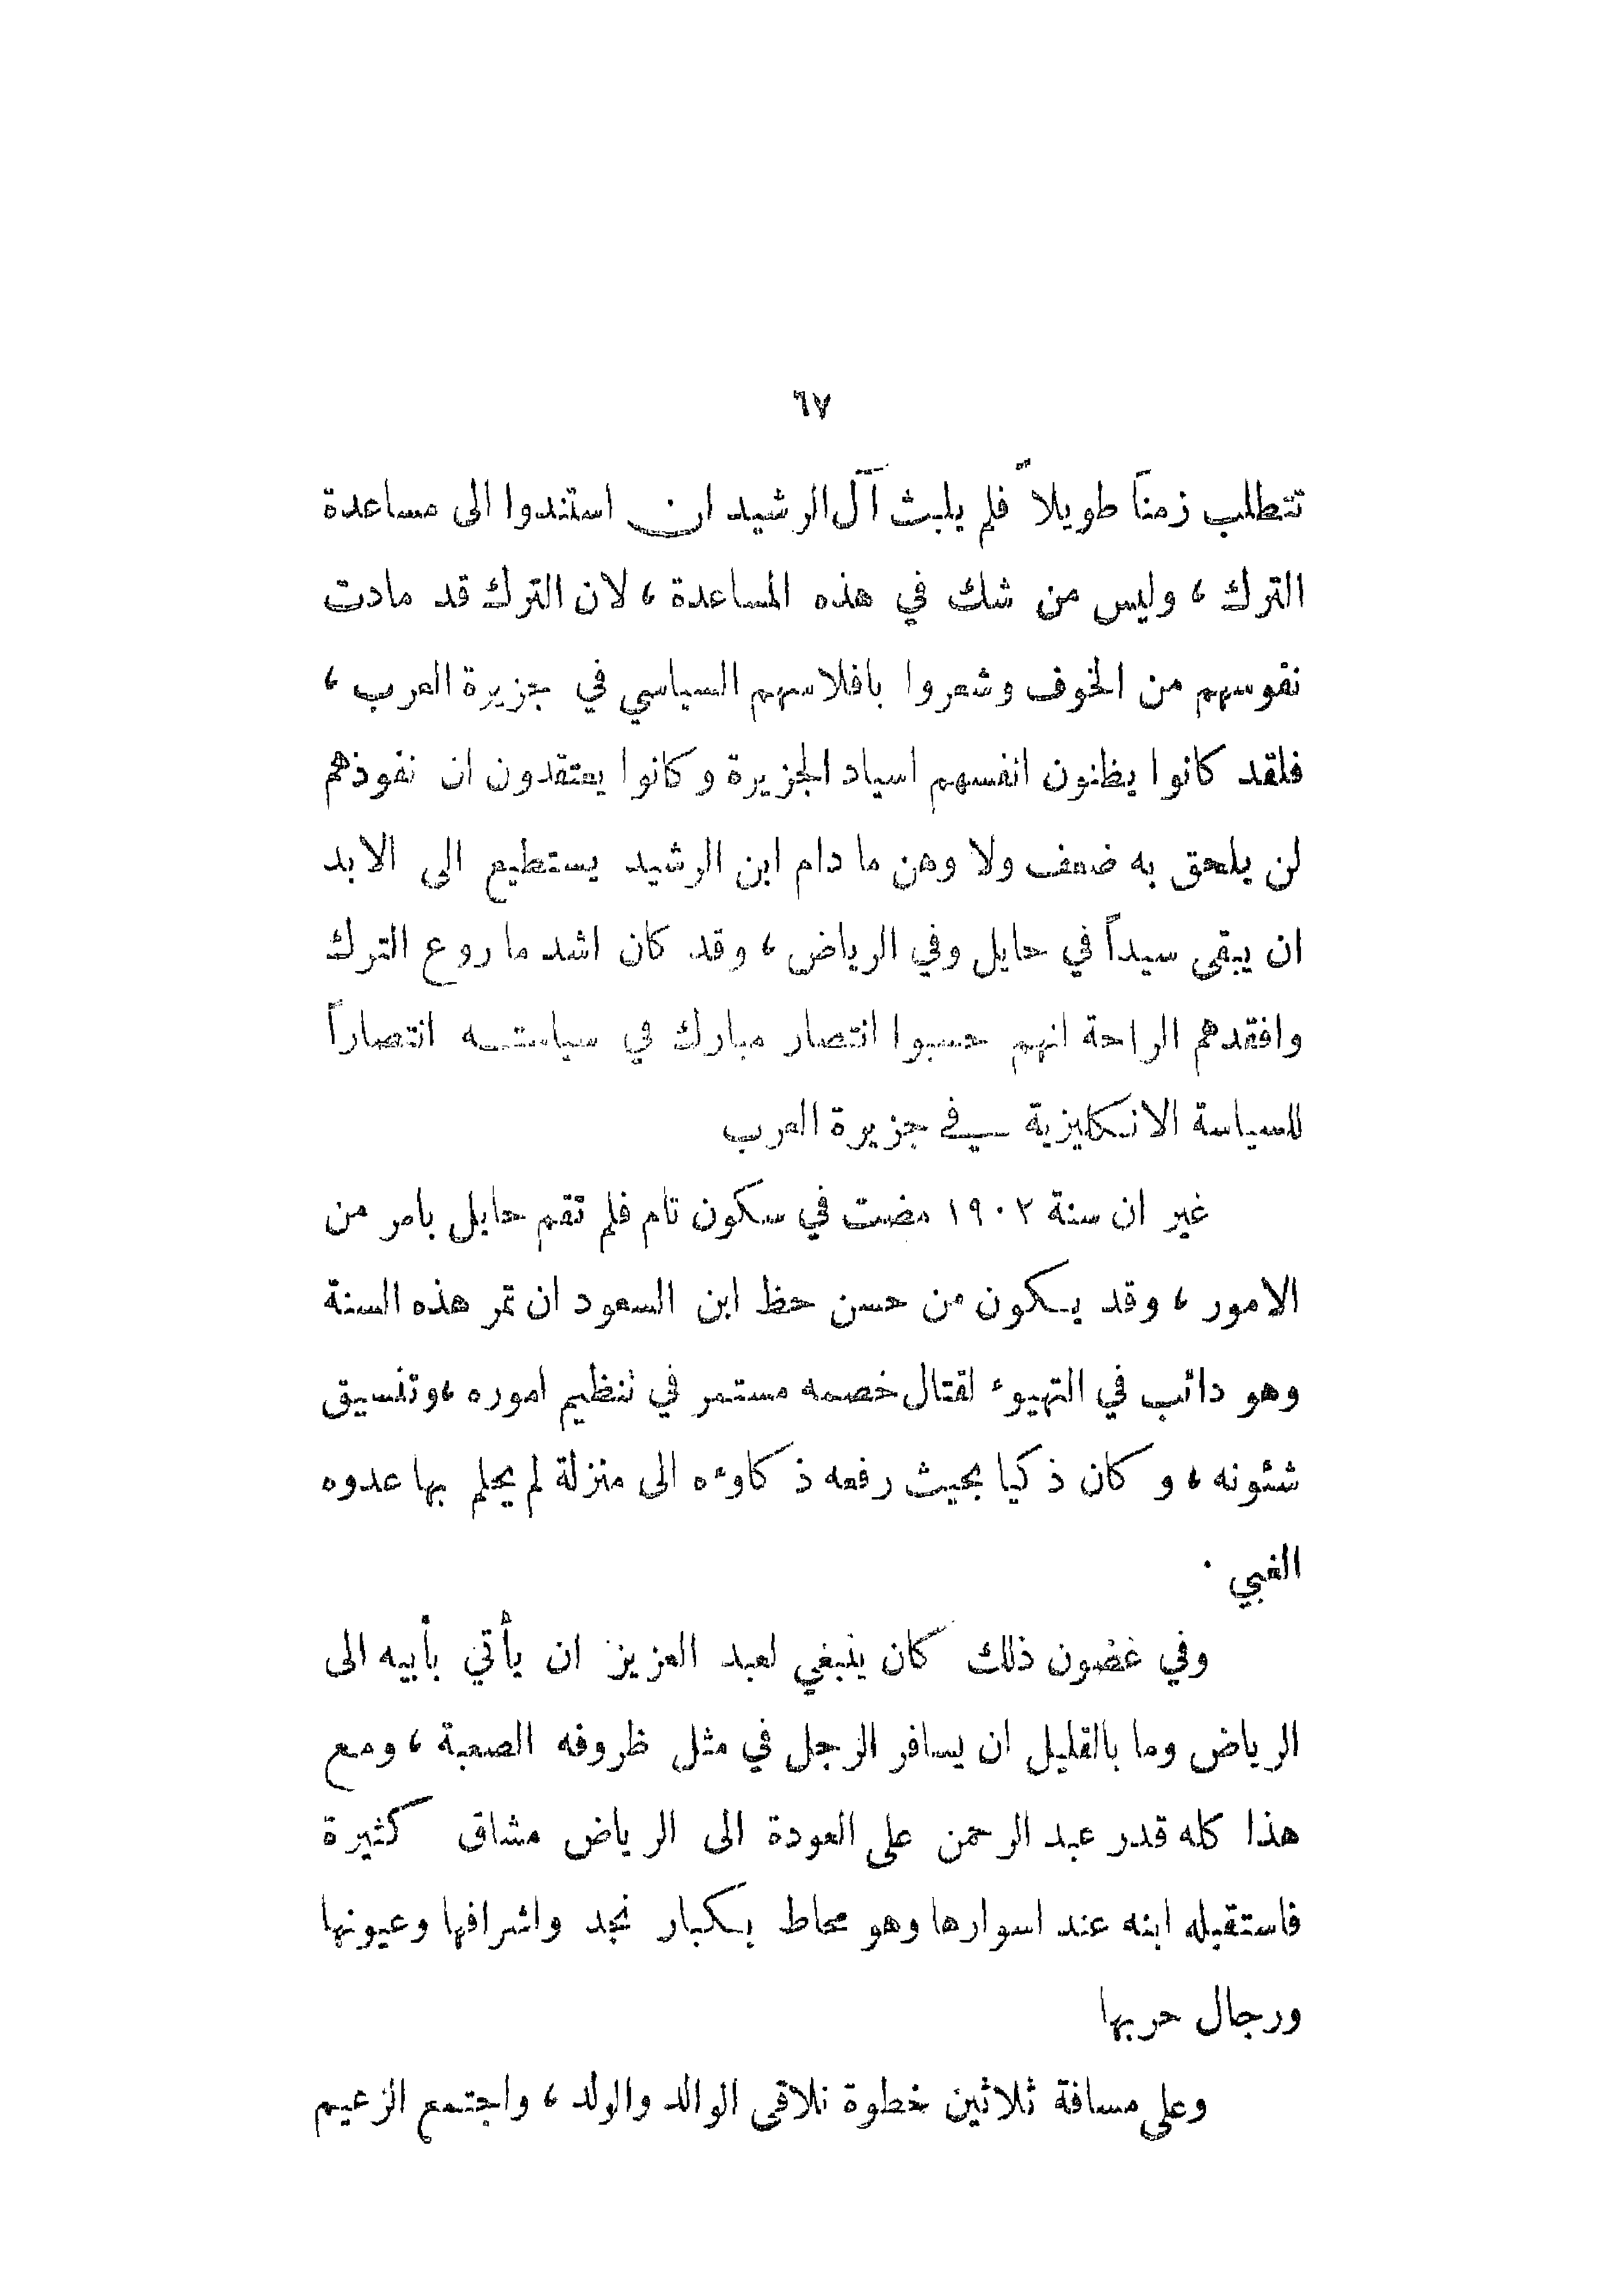 ٦٧
تتطلب زمناً طويلاً فلم يلبث آل الرشيد ان استندوا الى مساعدة
الترك ، وليس من شك في هذه المساعدة ، لان الترك قد مادت
نفوسهم من الخوف وشعروا بافلاسهم السياسي في جزيرة العرب ،
فلقد كانوا يظنون انفسهم اسياد الجزيرة وكانوا يعتقدون ان نفوذهم
لن يلحق به ضعف ولا وهن ما دام ابن الرشيد يستطيع الى الابد
ان يبقى سيداً في حايل وفي الرياض ، وقد كان اشد ما روع الترك
وافقدهم الراحة انهم حسبوا انتصار مبارك في سياسته انتصاراً
للسياسة الانكليزية في جزيرة العرب
غير ان سنة ١٩٠٢ مضت في سكون تام فلم تقم حايل بامر من
الامور ، وقد يكون من حسن حظ ابن السعود ان تمر هذه السنة
وهو دائب في التهيوء لقتال خصمه مستمر في تنظيم اموره ، وتنسيق
شئونه ، وكان ذكيا بحيث رفعه ذكاوءه الى منزلة لم يحلم بها عدوه
الغبي .
وفي غضون ذلك كان ينبغي لعبد العزيز ان يأتي بأبيه الى
الرياض وما بالقليل ان يسافر الرجل في مثل ظروفه الصعبة ، ومع
هذا كله قدر عبد الرحمن على العودة الى الرياض مشاق كثيرة
فاستقبله ابنه عند اسوارها وهو محاط بكبار نجد واشرافها وعيونها
ورجال حربها
وعلى مسافة ثلاثين خطوة تلاقى الوالد والولد ، واجتمع الزعيم